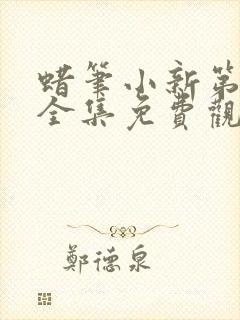 蜡筆小新第
全集免費觀
鄭德泉